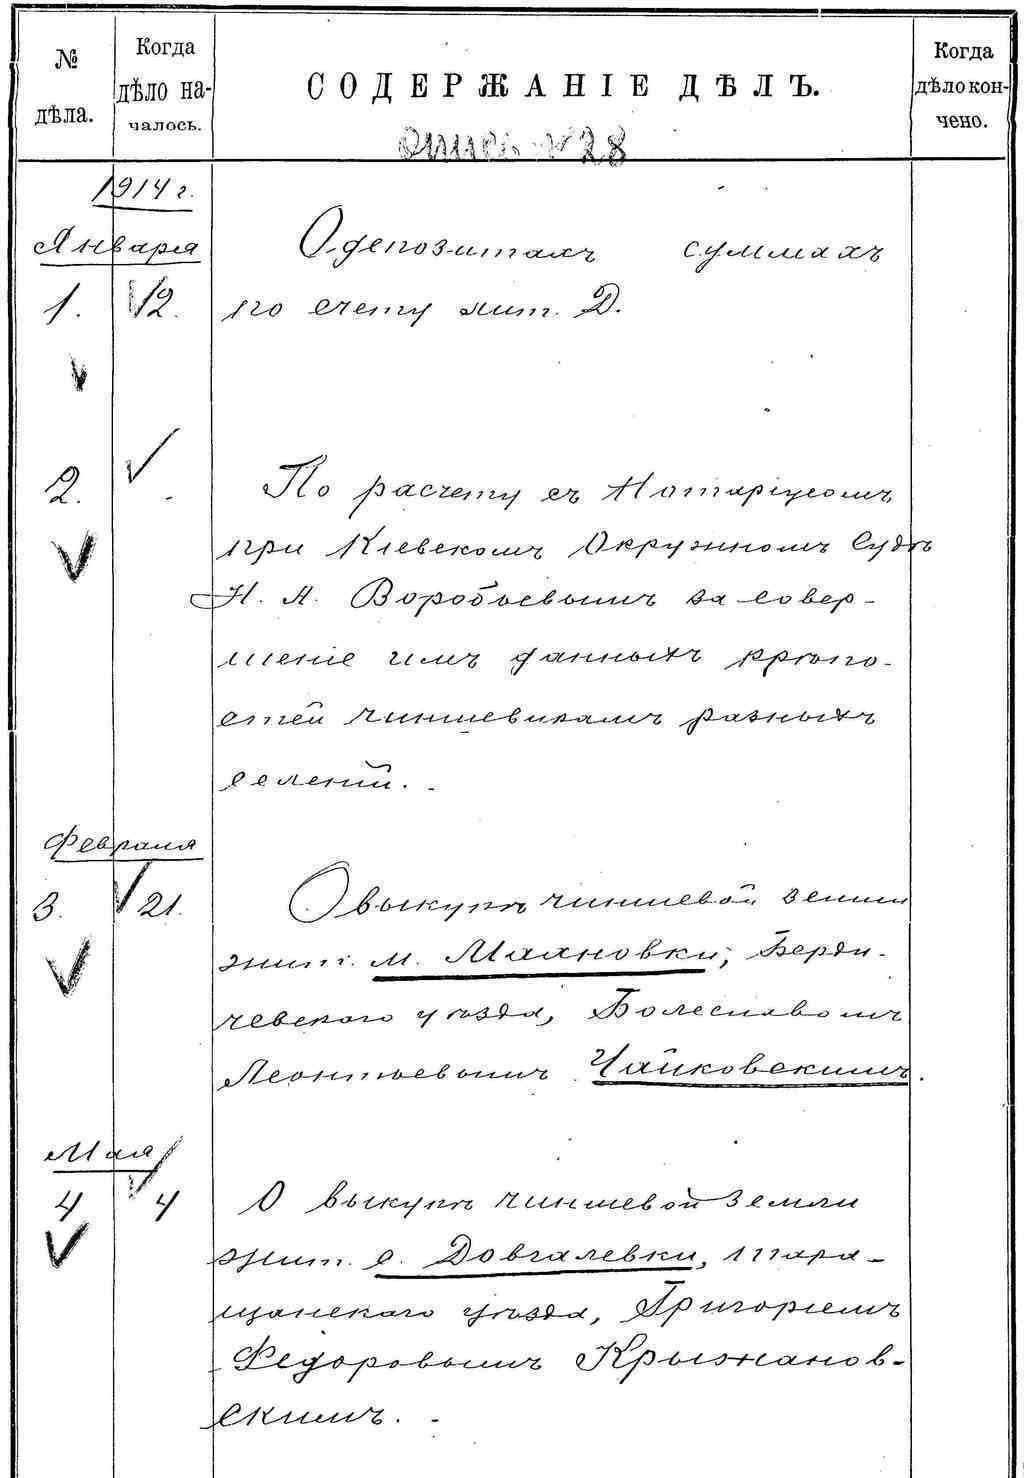 № дѣла.
Когда дѣло на-чалось.
СОДЕРЖАНІЕ ДѢЛЪ.
Когда дѣло кон-чено.
опись № 28
1914 г.
Января
1. 12. О депозитахъ суммахъ
по счету лит. Д.
2. По расчету съ Нотаріусомъ
при Кіевскомъ Окружномъ Судѣ
Н. А. Воробьевымъ за совер-
шеніе имъ данныхъ крѣпо-
стей чиншевикамъ разныхъ
селеній.
Февраля
3. 21. О выкупѣ чиншевой земли
жит. м. Махновки, Берди-
чевскаго уѣзда, Болеславомъ
Леонтьевымъ Чайковскимъ.
Мая
4 4 О выкупѣ чиншевой земли
жит. с. Довгалевки, Тара-
щанскаго уѣзда, Григоріемъ
Федоровымъ Крыжанов-
скимъ.